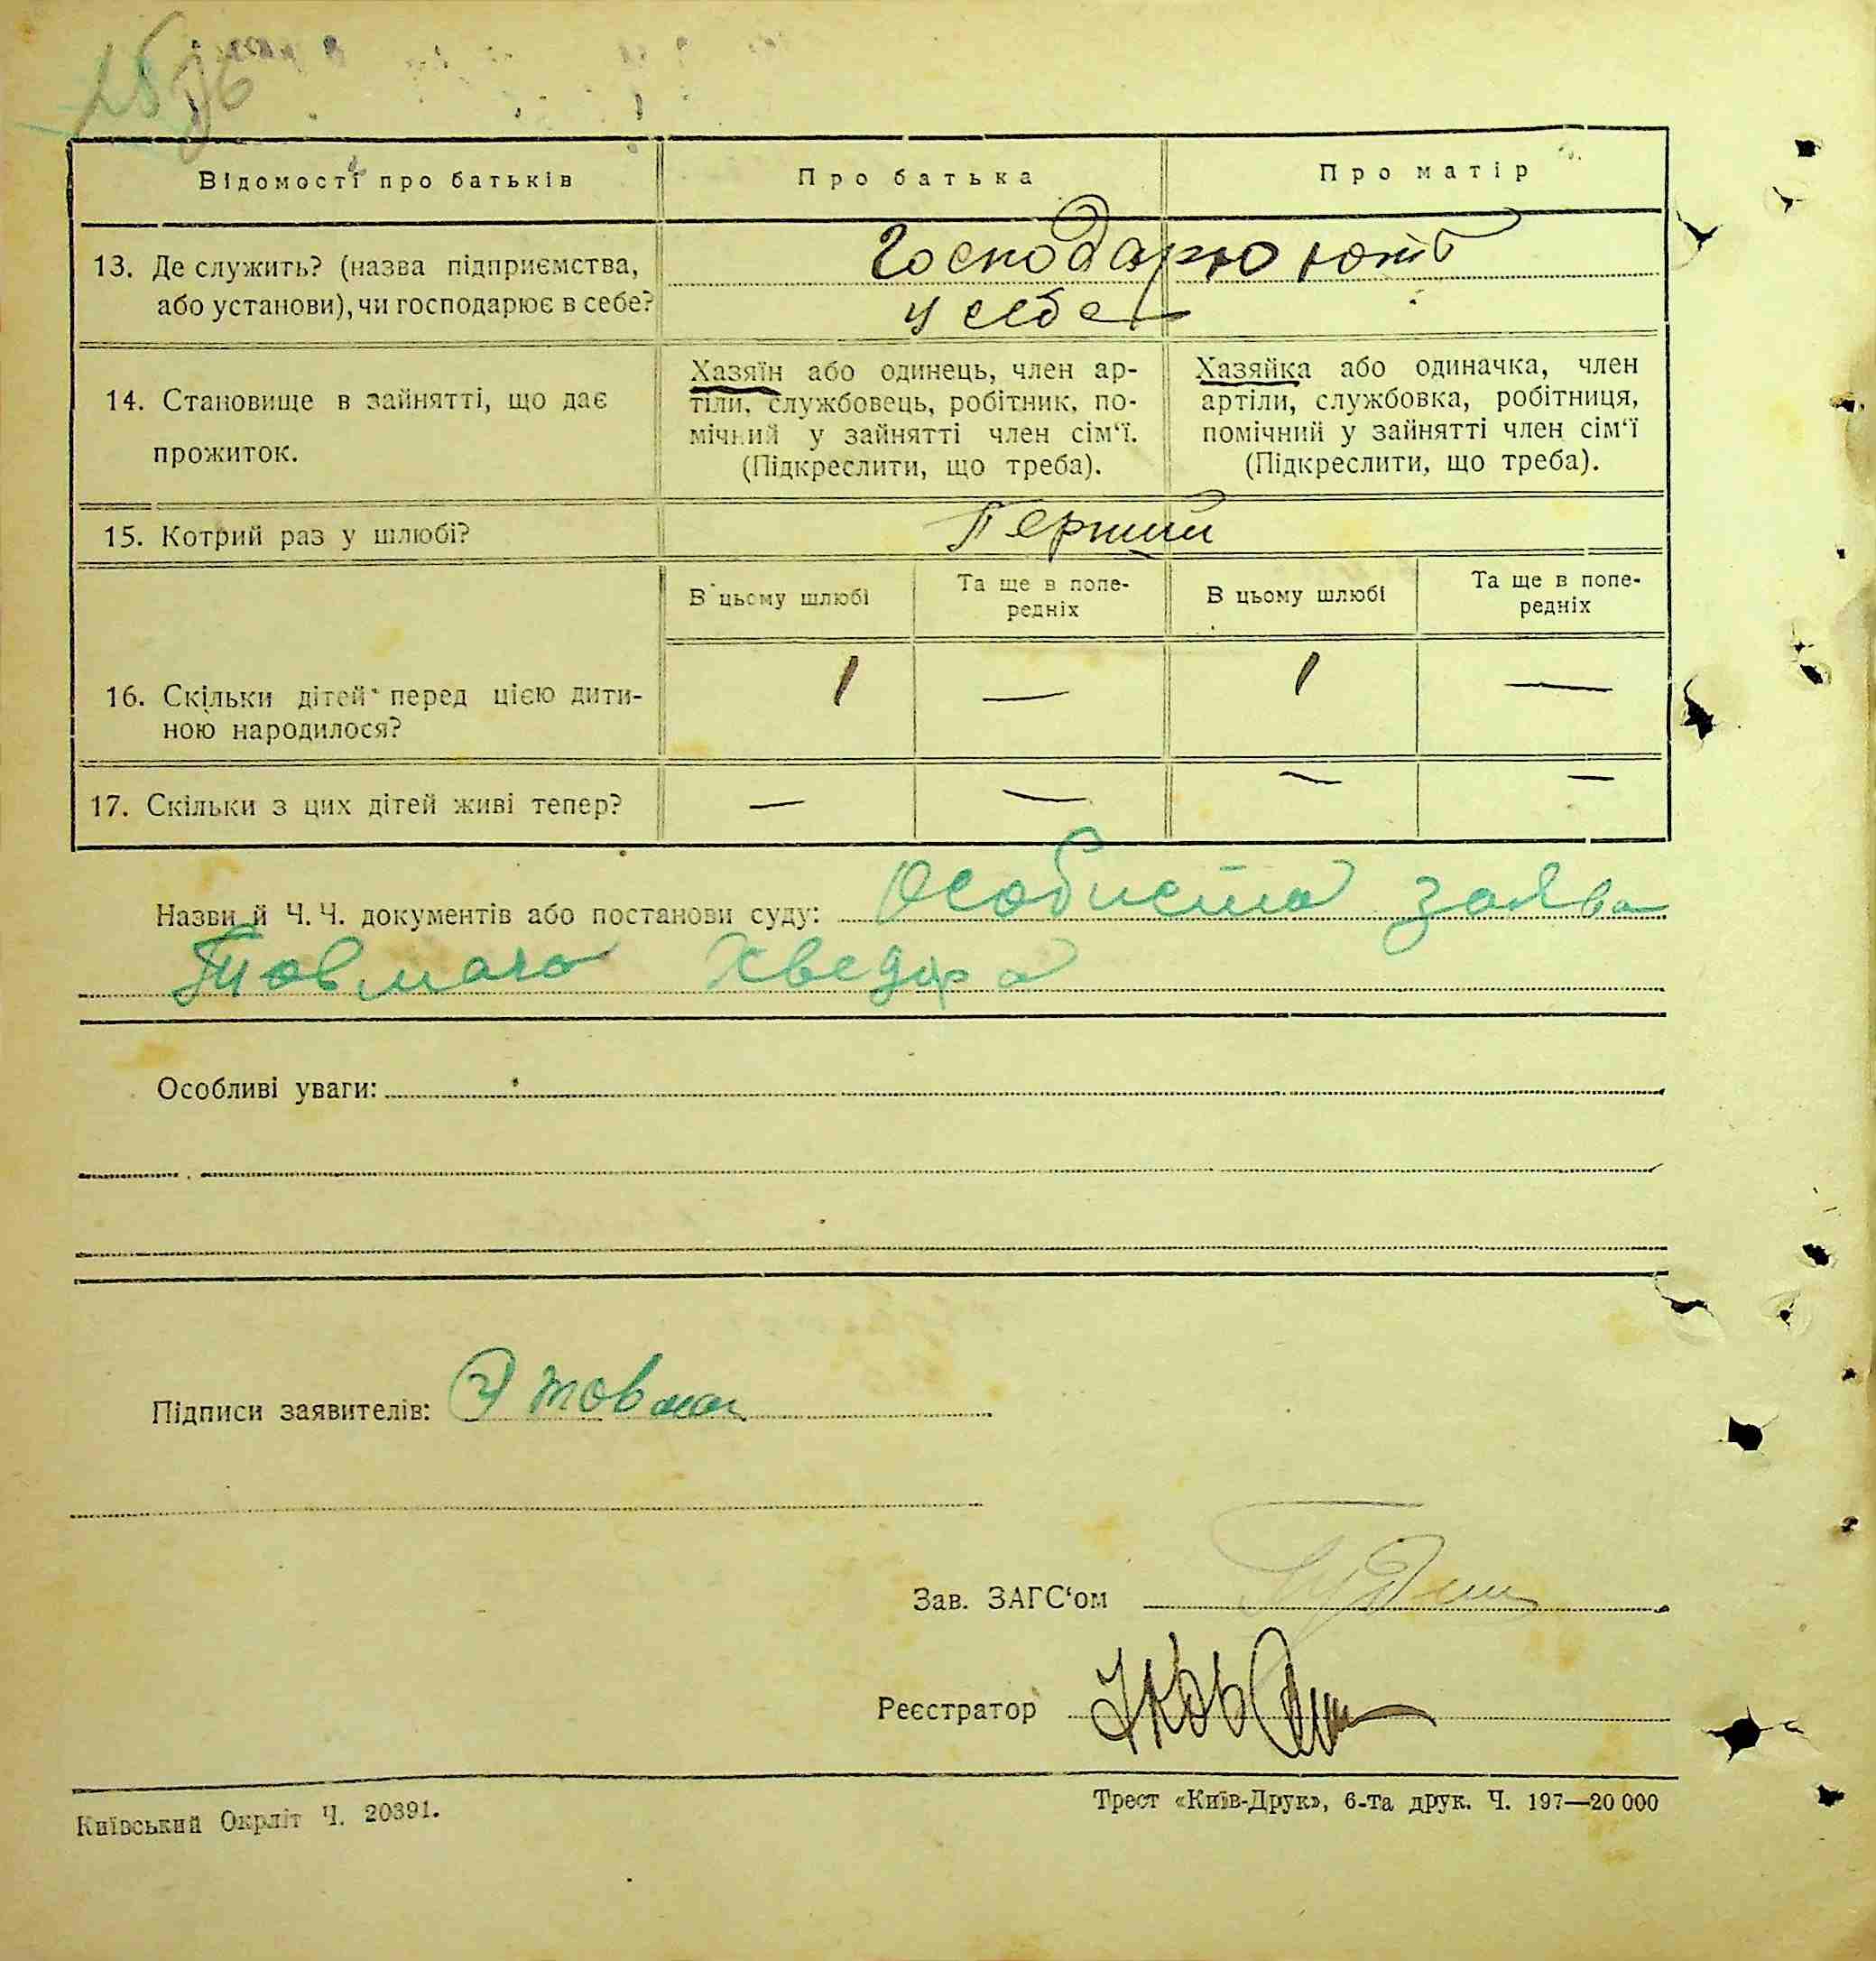 Відомості про батьків
Про батька
Про матір
13. Де служить? (назва підприємства, або установи), чи господарює в себе?
Господарюють
у себе
14. Становище в зайнятті, що дає прожиток.
Хазяїн або одинець, член ар-
тіли, службовець, робітник, по-
мічний у зайнятті член сім‘ї.
(Підкреслити, що треба).
Хазяйка або одиначка, член
артіли, службовка, робітниця,
помічний у зайнятті член сім‘ї
(Підкреслити, що треба).
15. Котрий раз у шлюбі?
Перший
В цьому шлюбі
Та ще в попе-
редніх
В цьому шлюбі
Та ще в попе-
редніх
16. Скільки дітей перед цією дити-
ною народилося?
1 — 1 —
17. Скільки з цих дітей живі тепер?
— — — —
Назви й Ч. Ч. документів або постанови суду: Особиста заява
Товмача Хведора
Особливі уваги:
Підписи заявителів: Товмач
Зав. ЗАГС‘ом
Реєстратор
Київський Окрліт Ч. 20391.
Трест «Київ-Друк», 6-та друк. Ч. 197—20 000